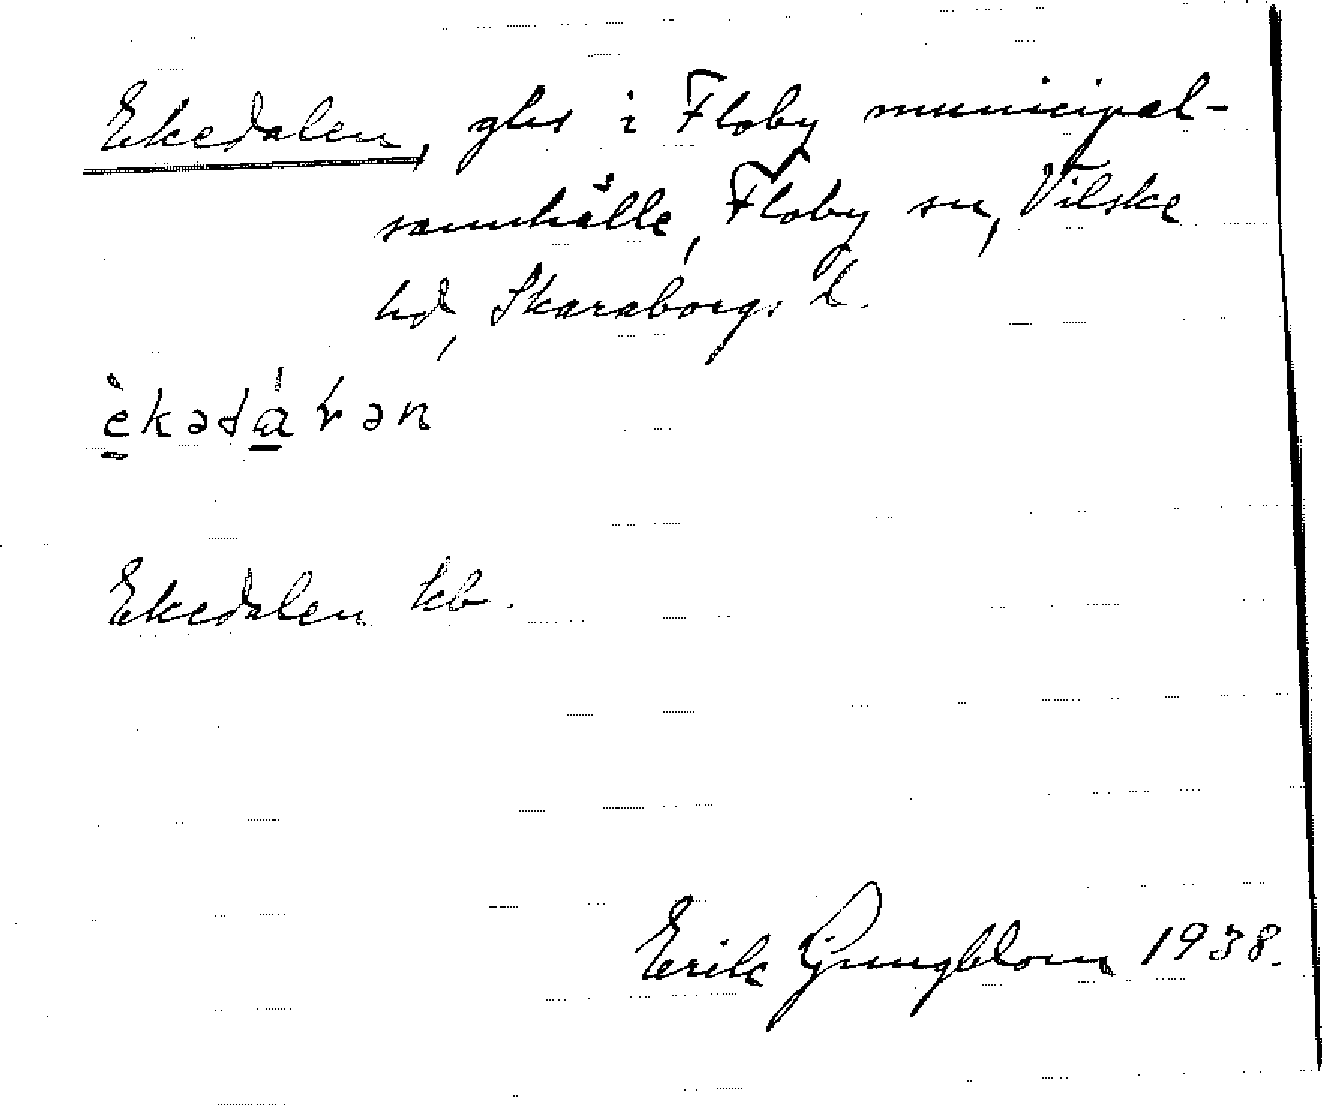 Ekedalen, ghs i Floby municipal-
samhälle, Floby sn, Vilske
hd, Skaraborgs l.
èkədáɽən
Ekedalen kb.
Erik Ljungblom 1938.